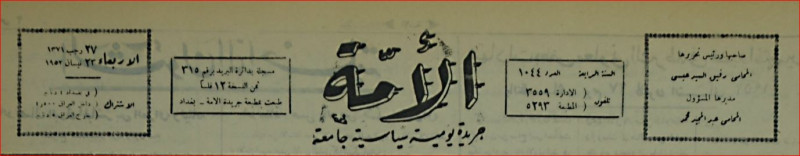 صاحبها ورئيس تحريرها
المحامي رفيق السيد عيسى
مديرها المسؤول
المحامي عبد المجيد محمد
السنة الرابعة العدد ١٠٤٤
تلفون ( الادارة ٣٥٥٩
( المطبعة ٥٢٩٣
الأمة
جريدة يومية سياسية جامعة
مسجلة بدائرة البريد برقم ٣١٥
ثمن النسخة ١٢ فلساً
طبعت بمطبعة جريدة الامة - بغداد
الاربعاء ٢٧ رجب ١٣٧١
٢٣ نيسان ١٩٥٢
الاشتراك